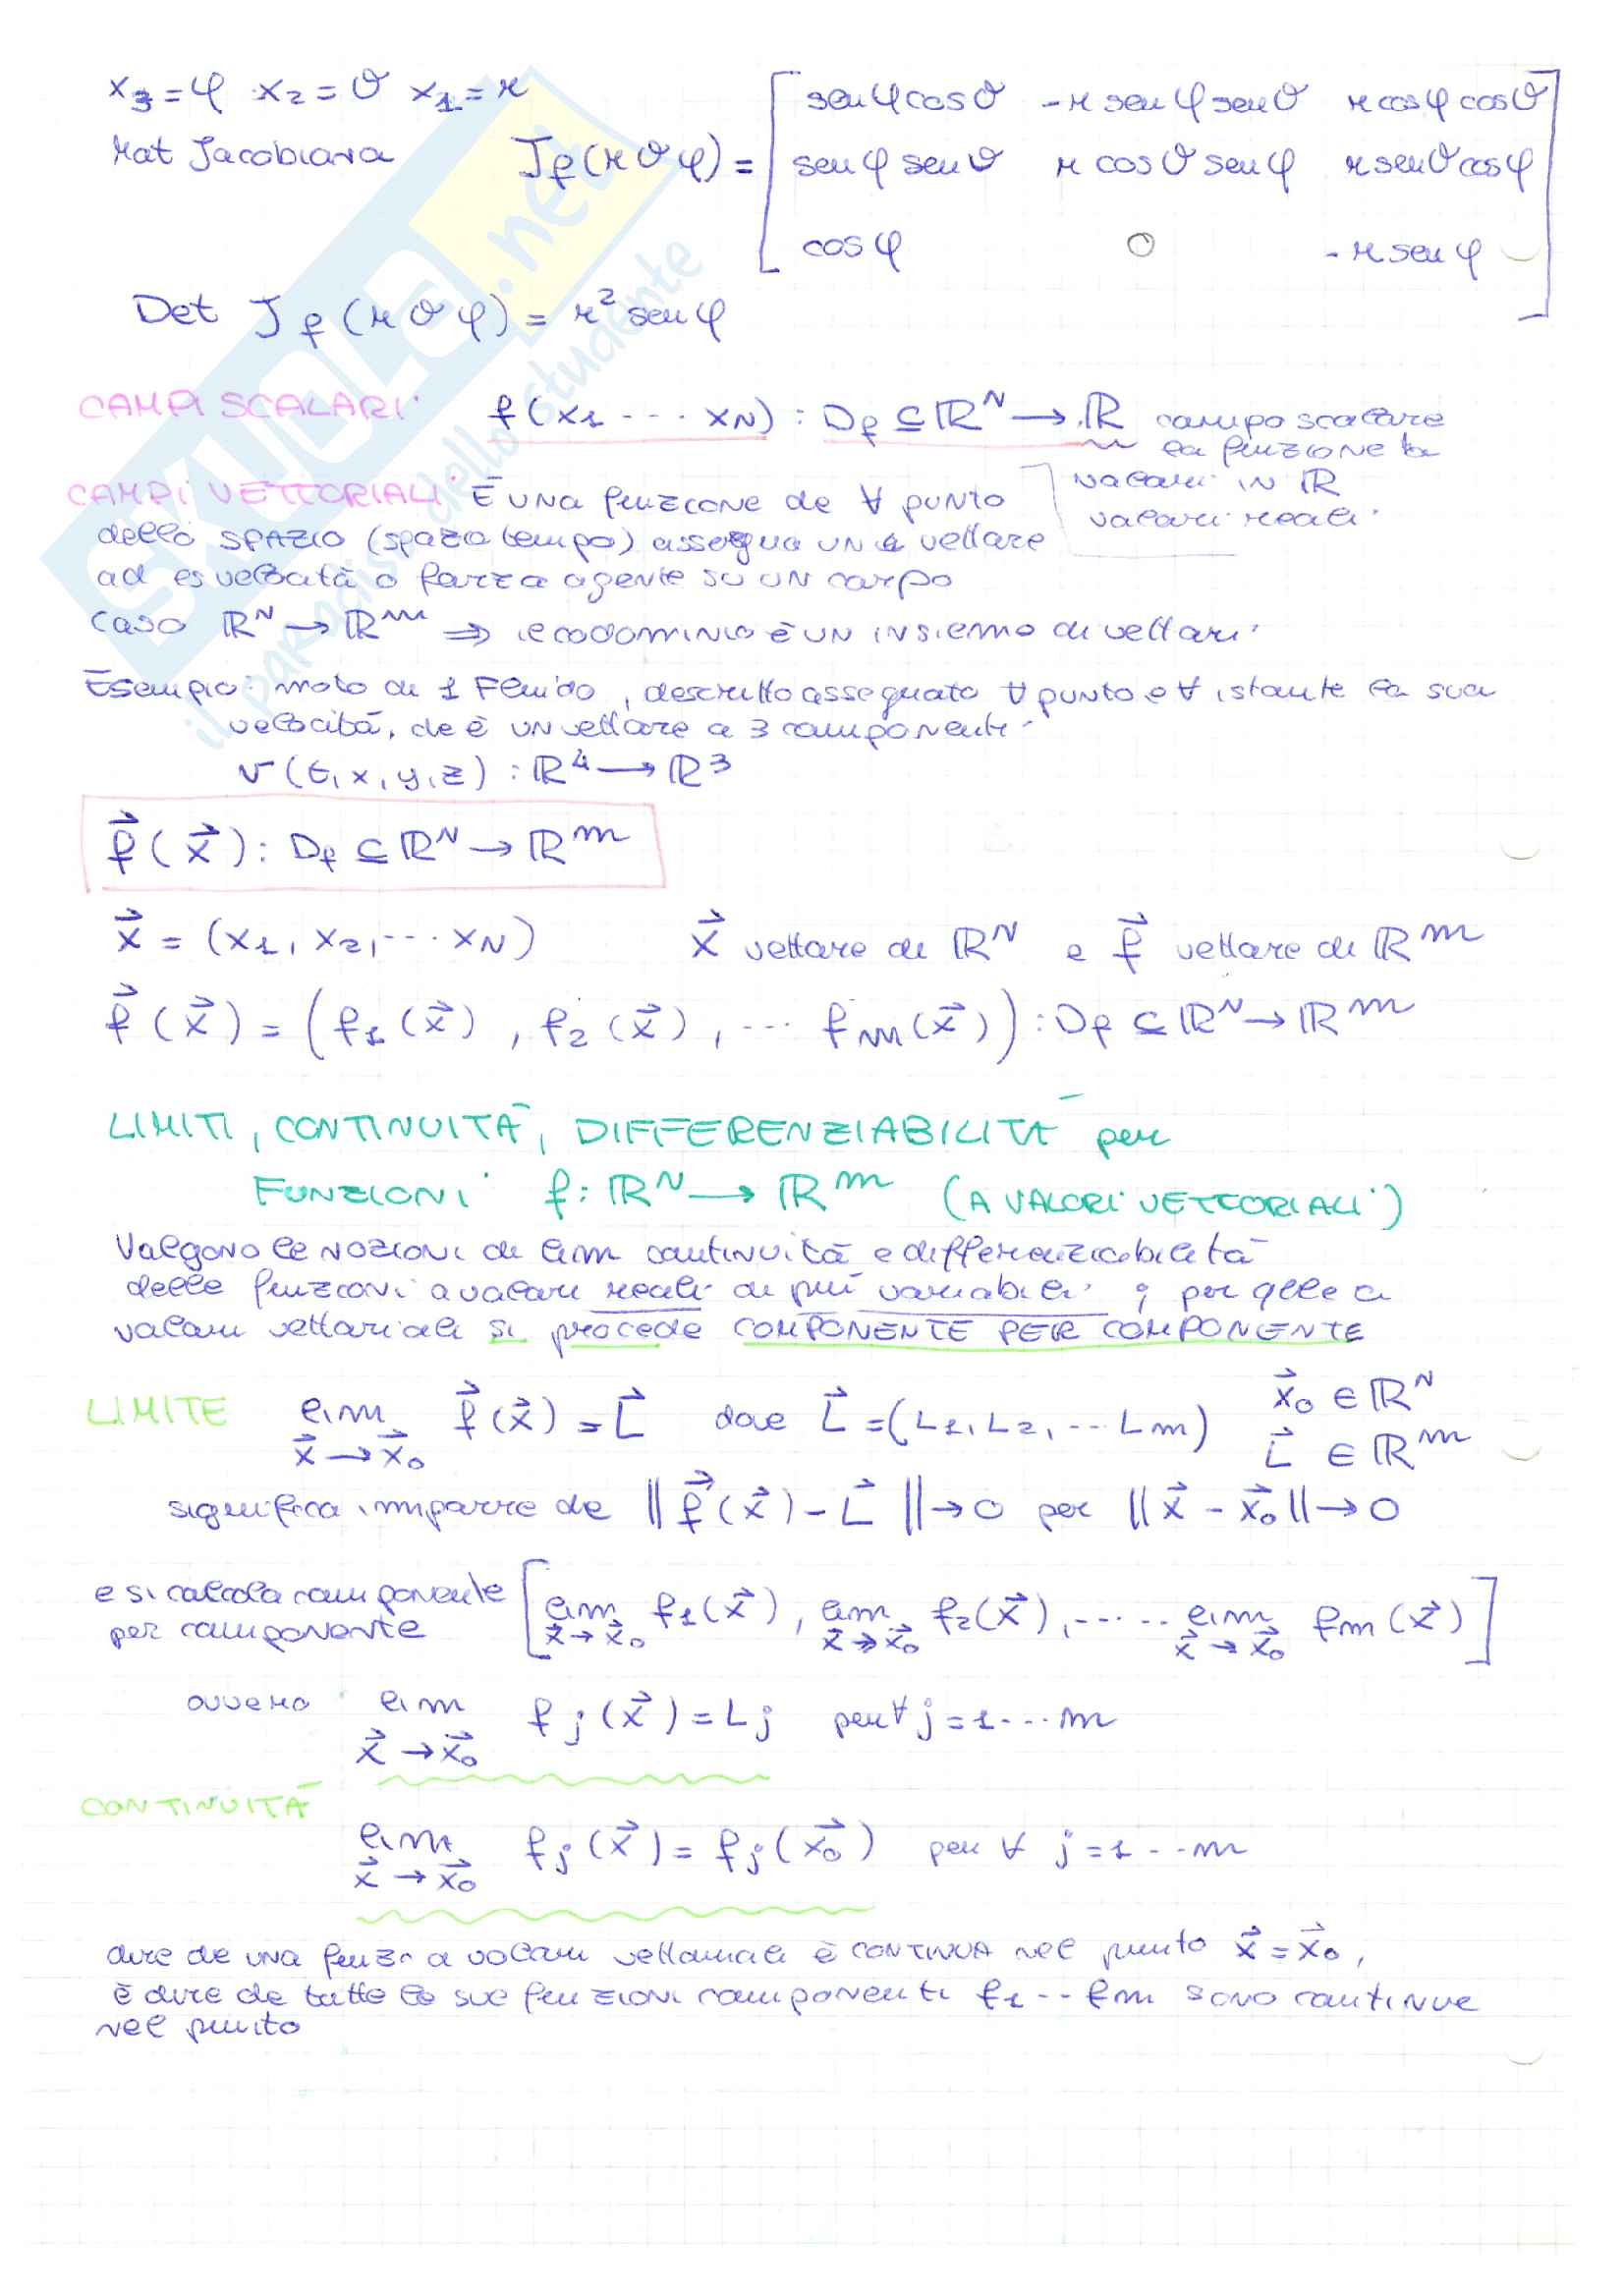 x₃=φ x₂=ϑ x₁=r
Mat Jacobiana J_f(r ϑ φ) = [ senφ cosϑ  -r senφ senϑ  r cosφ cosϑ
senφ senϑ  r cosϑ senφ  r senϑ cosφ
cosφ  0  -r senφ ]
Det J_f(r ϑ φ) = r² senφ
CAMPI SCALARI f(x₁ --- x_N) : D_f ⊆ ℝᴺ → ℝ campo scalare
la funzione ha
valori in ℝ
valori reali
CAMPI VETTORIALI È UNA funzione che ∀ punto
dello SPAZIO (spazio tempo) assegna UN vettore
ad es velocità o forza agente su UN corpo
Caso ℝᴺ → ℝᵐ ⇒ il codominio è UN insieme di vettori
Esempio: moto di 1 Fluido, descritto assegnato ∀ punto e ∀ istante la sua
velocità, che è UN vettore a 3 componenti
v(t, x, y, z) : ℝ⁴ → ℝ³
f⃗(x⃗) : D_f ⊆ ℝᴺ → ℝᵐ
x⃗ = (x₁, x₂, ... x_N) x⃗ vettore di ℝᴺ e f⃗ vettore di ℝᵐ
f⃗(x⃗) = (f₁(x⃗), f₂(x⃗), ... f_m(x⃗)) : D_f ⊆ ℝᴺ → ℝᵐ
LIMITI, CONTINUITÀ, DIFFERENZIABILITÀ per
FUNZIONI f: ℝᴺ → ℝᵐ (A VALORI VETTORIALI)
Valgono le NOZIONI di lim continuità e differenziabilità
delle funzioni a valori reali di più variabili; per qlle a
valori vettoriali si procede COMPONENTE PER COMPONENTE
LIMITE lim x⃗→x⃗₀ f⃗(x⃗) = L⃗ dove L⃗ = (L₁, L₂, ... Lm) x⃗₀ ∈ ℝᴺ
L⃗ ∈ ℝᵐ
significa imporre che ‖f⃗(x⃗) - L⃗‖ → 0 per ‖x⃗ - x⃗₀‖ → 0
e si calcola componente
per componente [lim x⃗→x⃗₀ f₁(x⃗), lim x⃗→x⃗₀ f₂(x⃗), ..... lim x⃗→x⃗₀ f_m(x⃗)]
ovvero lim x⃗→x⃗₀ f_j(x⃗) = L_j per ∀ j=1...m
CONTINUITÀ
lim x⃗→x⃗₀ f_j(x⃗) = f_j(x⃗₀) per ∀ j=1...m
dire che una funz a valori vettoriali è CONTINUA nel punto x⃗ = x⃗₀,
è dire che tutte le sue funzioni componenti f₁ -- fm sono continue
nel punto
SKUOLA.net
il paradiso dello studente